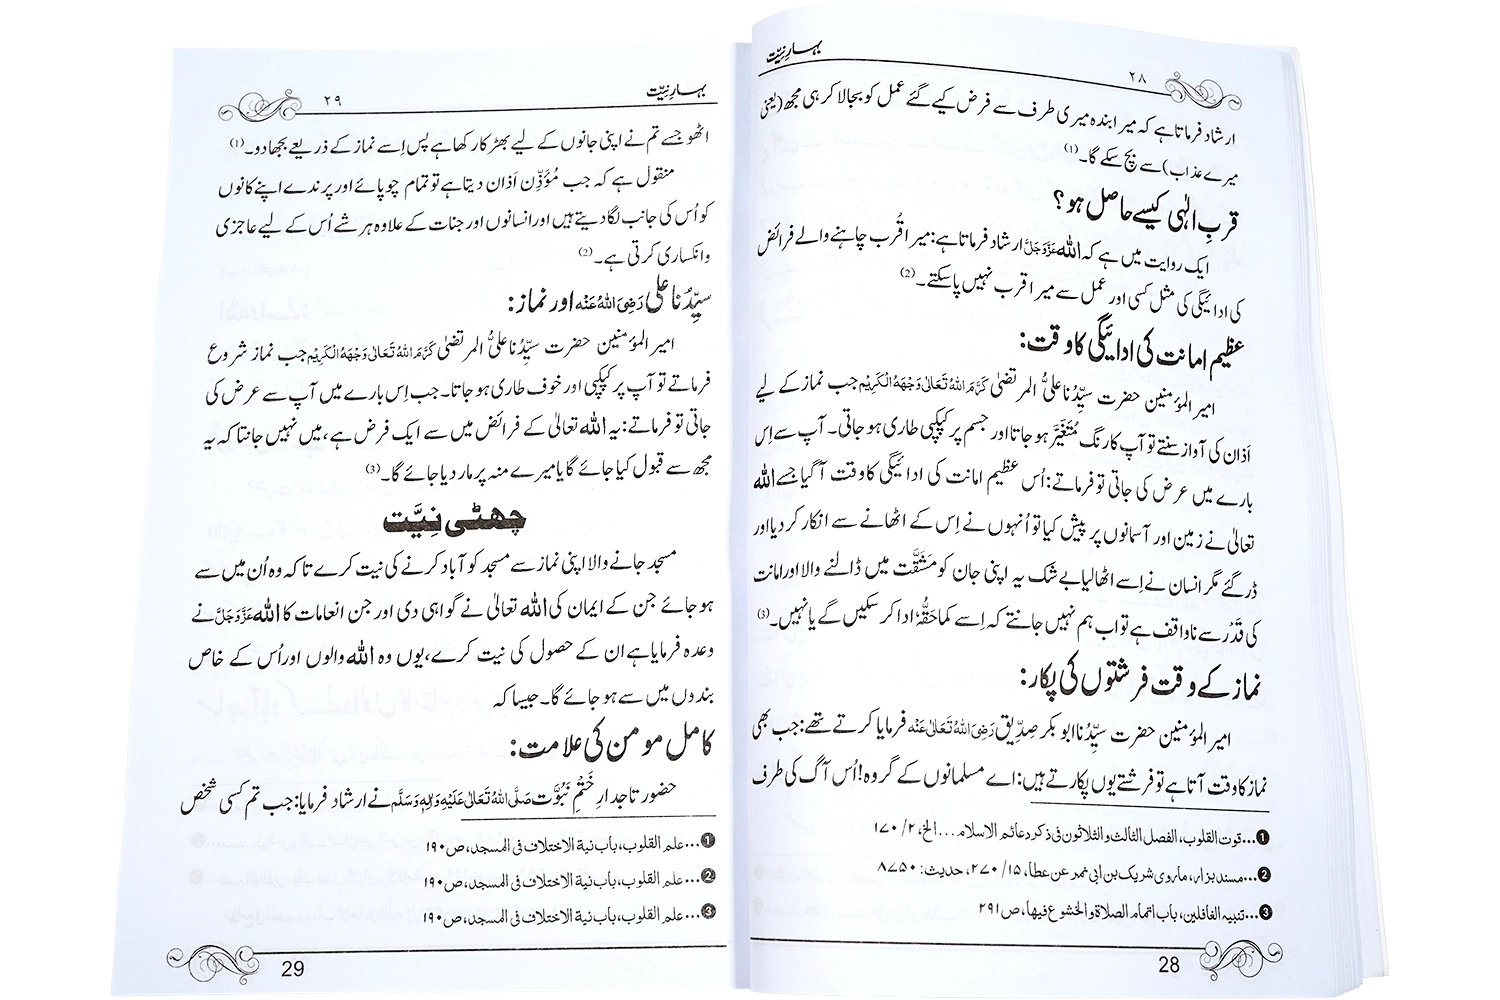 بہارِ نِیَّت
۲۸
ارشاد فرماتا ہے کہ میرا بندہ میری طرف سے فرض کیے گئے عمل کو بجالا کر ہی مجھ (یعنی
میرے عذاب) سے بچ سکے گا۔(1)
قربِ الٰہی کیسے حاصل ہو؟
ایک روایت میں ہے کہ اللہ عَزَّوَجَلَّ ارشاد فرماتا ہے: میرا قُرب چاہنے والے فرائض
کی ادائیگی کی مثل کسی اور عمل سے میرا قرب نہیں پاسکتے۔(2)
عظیم امانت کی ادائیگی کا وقت:
امیر المؤمنین حضرت سیِّدُنا علیُّ المرتضیٰ کَرَّمَ اللہُ تَعَالٰی وَجْھَہُ الْکَرِیْم جب نماز کے لیے
اَذان کی آواز سنتے تو آپ کا رنگ مُتَغَیَّر ہو جاتا اور جسم پر کپکپی طاری ہو جاتی۔ آپ سے اِس
بارے میں عرض کی جاتی تو فرماتے: اُس عظیم امانت کی ادائیگی کا وقت آگیا جسے اللہ
تعالیٰ نے زمین اور آسمانوں پر پیش کیا تو اُنہوں نے اِس کے اٹھانے سے انکار کر دیا اور
ڈر گئے مگر انسان نے اِسے اٹھالیا بے شک یہ اپنی جان کو مَشَقَّت میں ڈالنے والا اور امانت
کی قَدْر سے ناواقف ہے تو اب ہم نہیں جانتے کہ اِسے کماحَقُّہٗ ادا کر سکیں گے یا نہیں۔(3)
نماز کے وقت فرشتوں کی پکار:
امیر المؤمنین حضرت سیِّدُنا ابو بکر صِدِّیق رَضِیَ اللہُ تَعَالٰی عَنْہ فرمایا کرتے تھے: جب بھی
نماز کا وقت آتا ہے تو فرشتے یوں پکارتے ہیں: اے مسلمانوں کے گروہ! اُس آگ کی طرف
❶...قوت القلوب، الفصل الثالث والثلاثون فی ذکر دعائم الاسلام...الخ، ۲/ ۱۷۰
❷...مسند بزار، ماروی شریک بن ابی نمر عن عطا، ۱۵/ ۲۷۰، حدیث: ۸۷۵۰
❸...تنبیہ الغافلین، باب اتمام الصلاة والخشوع فیھا، ص۲۹۱
28
بہارِ نِیَّت
۲۹
اٹھو جسے تم نے اپنی جانوں کے لیے بھڑکا رکھا ہے پس اِسے نماز کے ذریعے بجھادو۔(1)
منقول ہے کہ جب مُؤَذِّن اَذان دیتا ہے تو تمام چوپائے اور پرندے اپنے کانوں
کو اُس کی جانب لگادیتے ہیں اور انسانوں اور جنات کے علاوہ ہر شے اُس کے لیے عاجزی
وانکساری کرتی ہے۔(2)
سیِّدُنا علی رَضِیَ اللہُ عَنْہ اور نماز:
امیر المؤمنین حضرت سیِّدُنا علیُّ المرتضیٰ کَرَّمَ اللہُ تَعَالٰی وَجْھَہُ الْکَرِیْم جب نماز شروع
فرماتے تو آپ پر کپکپی اور خوف طاری ہو جاتا۔ جب اِس بارے میں آپ سے عرض کی
جاتی تو فرماتے: یہ اللہ تعالیٰ کے فرائض میں سے ایک فرض ہے، میں نہیں جانتا کہ یہ
مجھ سے قبول کیا جائے گا یا میرے منہ پر مار دیا جائے گا۔(3)
چھٹی نِیَّت
مسجد جانے والا اپنی نماز سے مسجد کو آباد کرنے کی نیت کرے تاکہ وہ اُن میں سے
ہو جائے جن کے ایمان کی اللہ تعالیٰ نے گواہی دی اور جن انعامات کا اللہ عَزَّوَجَلَّ نے
وعدہ فرمایا ہے ان کے حصول کی نیت کرے، یوں وہ اللہ والوں اور اُس کے خاص
بندوں میں سے ہو جائے گا۔ جیسا کہ
کامل مومن کی علامت:
حضور تاجدارِ خَتْمِ نَبُوَّت صَلَّی اللہُ تَعَالٰی عَلَیْہِ وَاٰلِہٖ وَسَلَّم نے ارشاد فرمایا: جب تم کسی شخص
❶...علم القلوب، باب نیة الاختلاف فی المسجد، ص۱۹۰
❷...علم القلوب، باب نیة الاختلاف فی المسجد، ص۱۹۰
❸...علم القلوب، باب نیة الاختلاف فی المسجد، ص۱۹۰
29